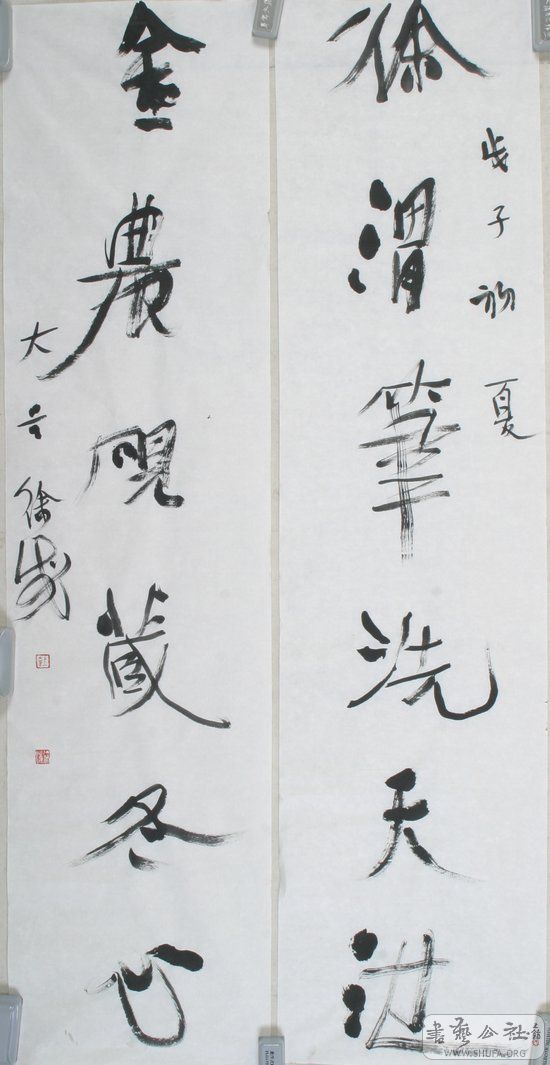 戊子初夏
徐渭筆洗天池
金農硯藏冬心
大 徐
書藝公社
WWW.SHUFA.ORG